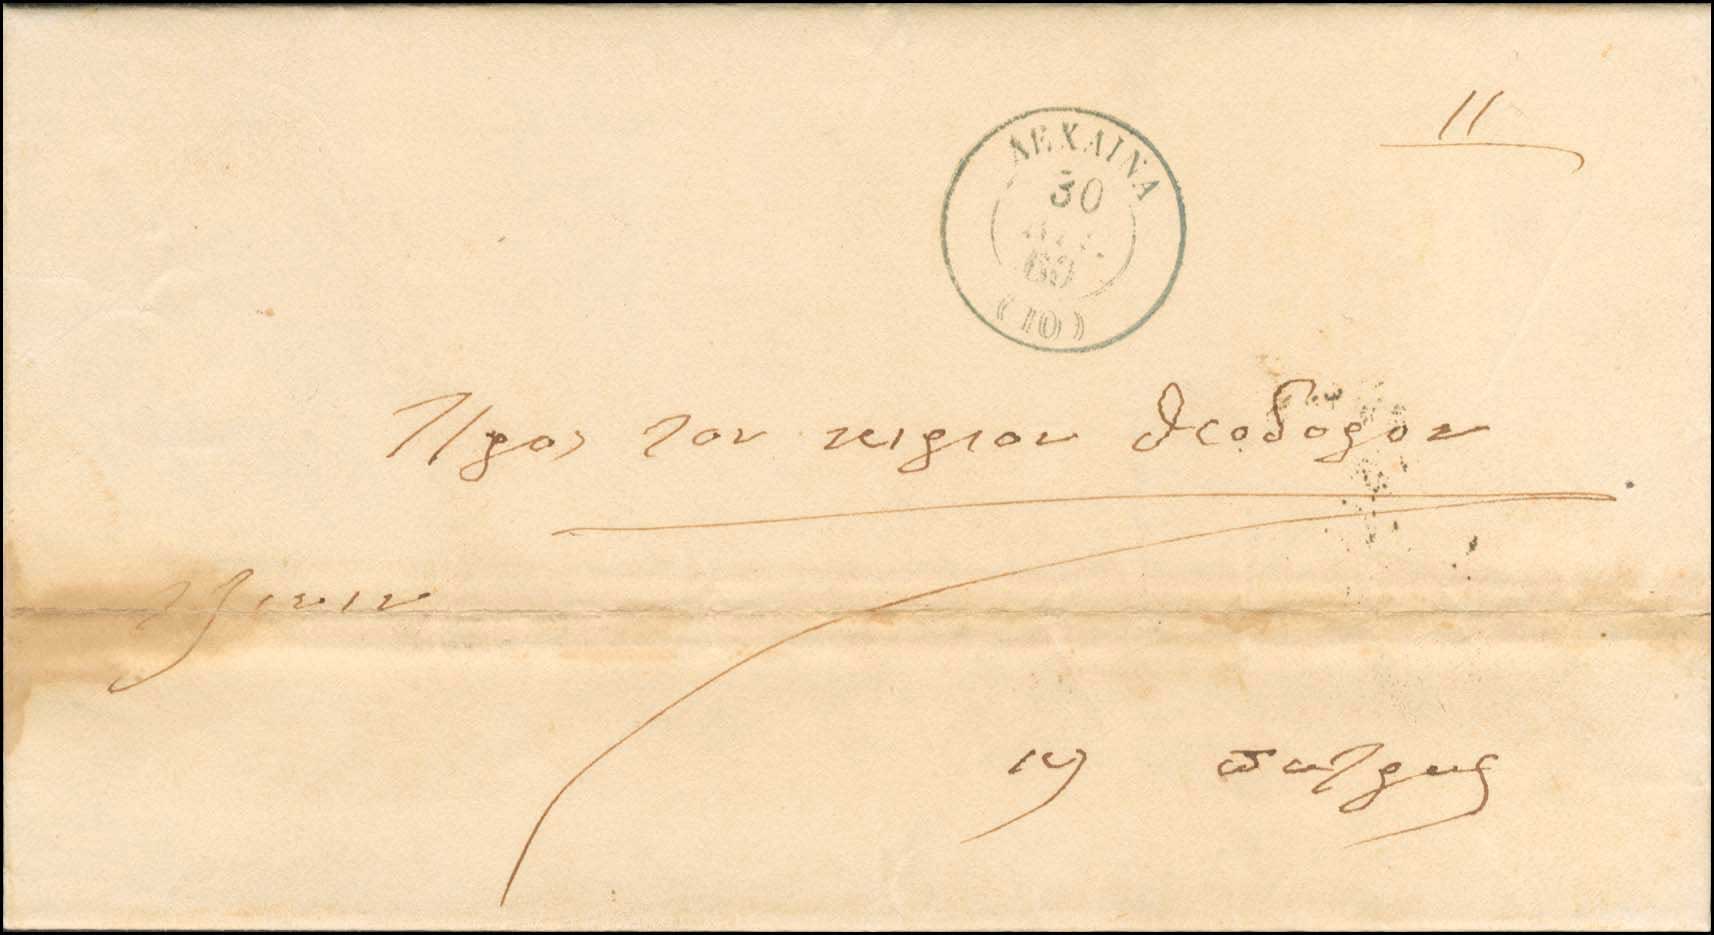 11
ΛΕΧΑΙΝΑ
30
60
(10)
Προς τον κύριον Θεόδορον
Πάτρας